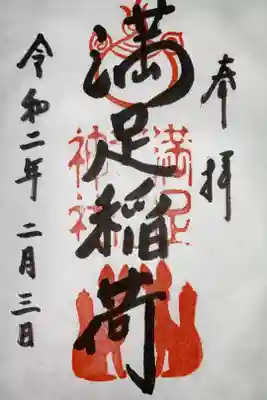 奉拝
満足稲荷
満足
神社
令和二年 二月三日